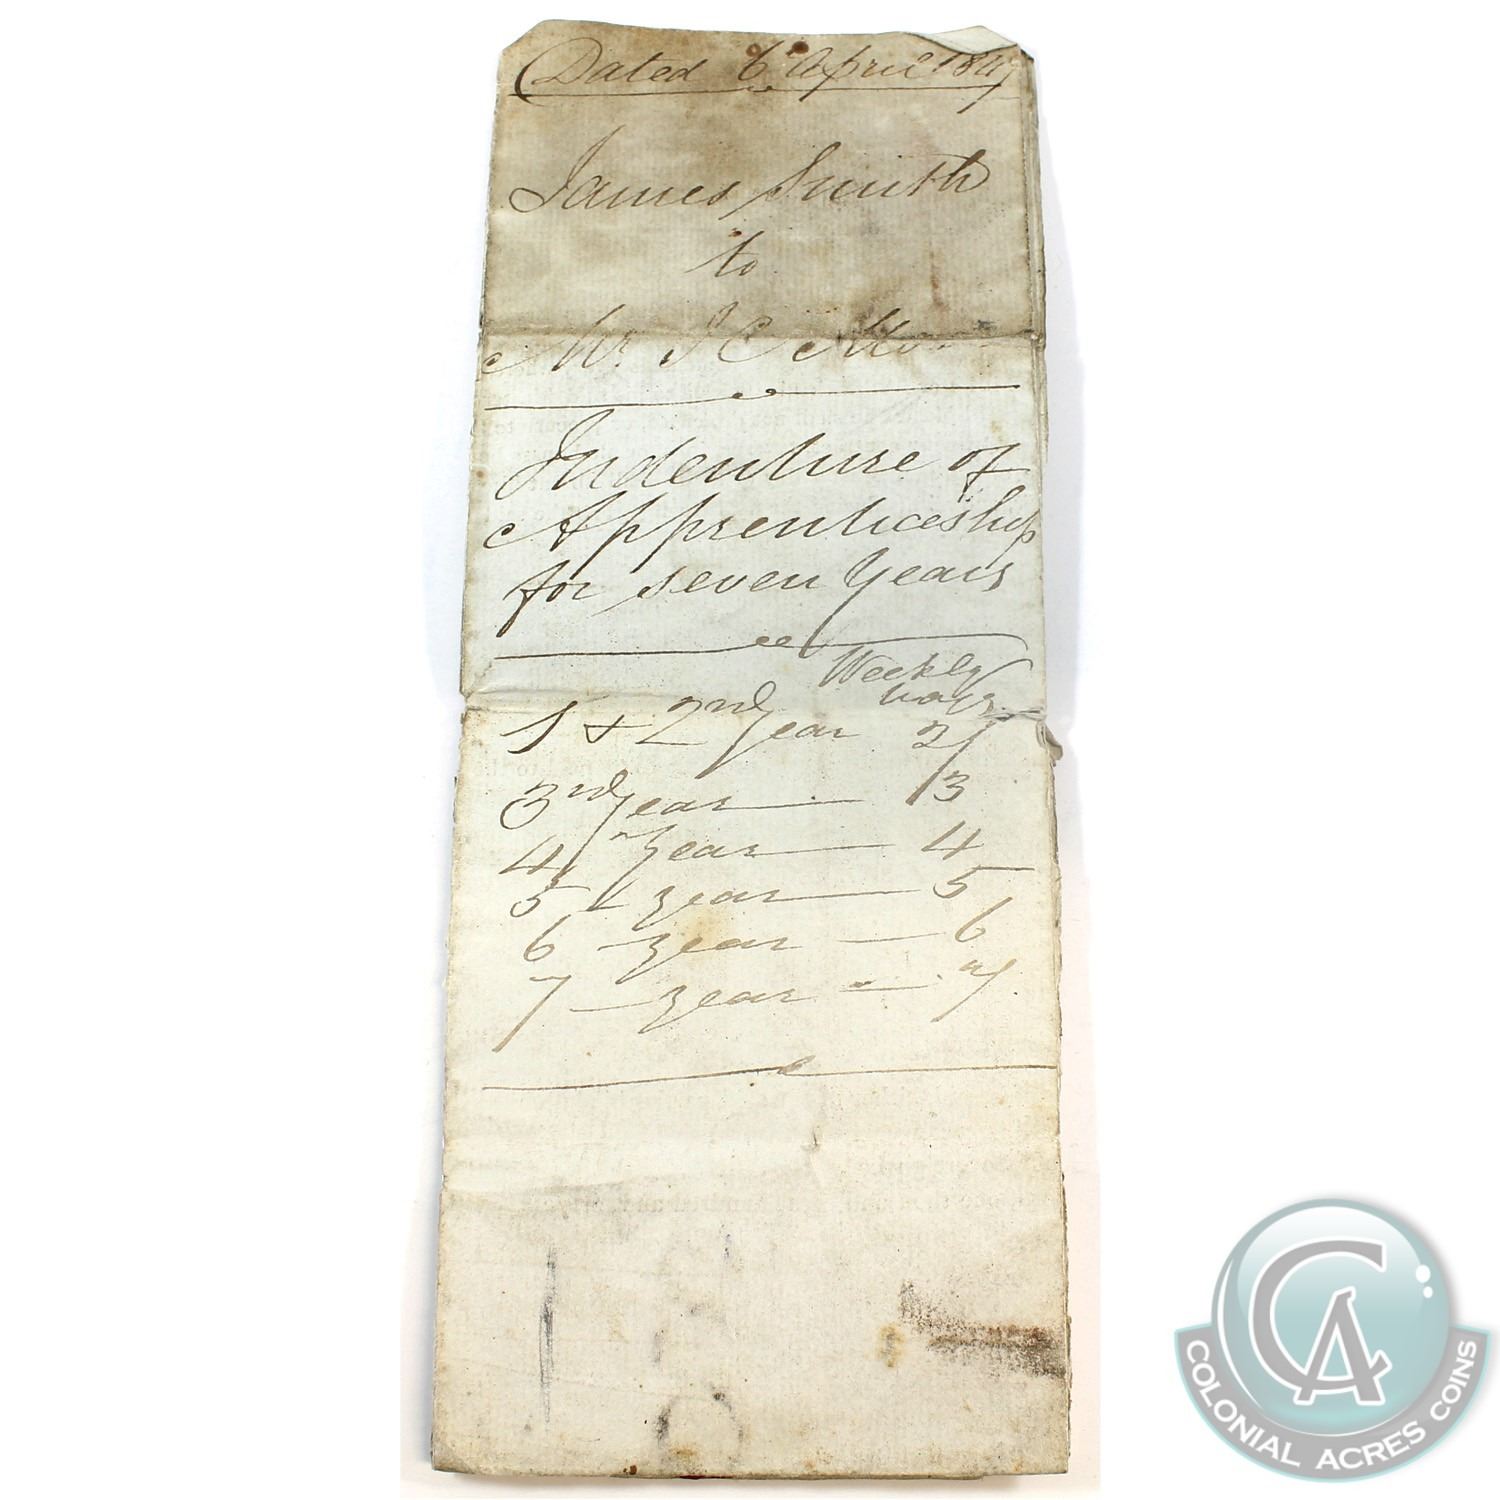 Dated 6 April 1847
James Smith
to
Mr. J C
Indenture of
Apprenticeship
for seven Years
Weekly
wages
1 + 2nd year 2/
3rd year — 3
4 year — 4
5 year — 5
6 — year — 6
7 — year — 7
CA
COLONIAL ACRES COINS